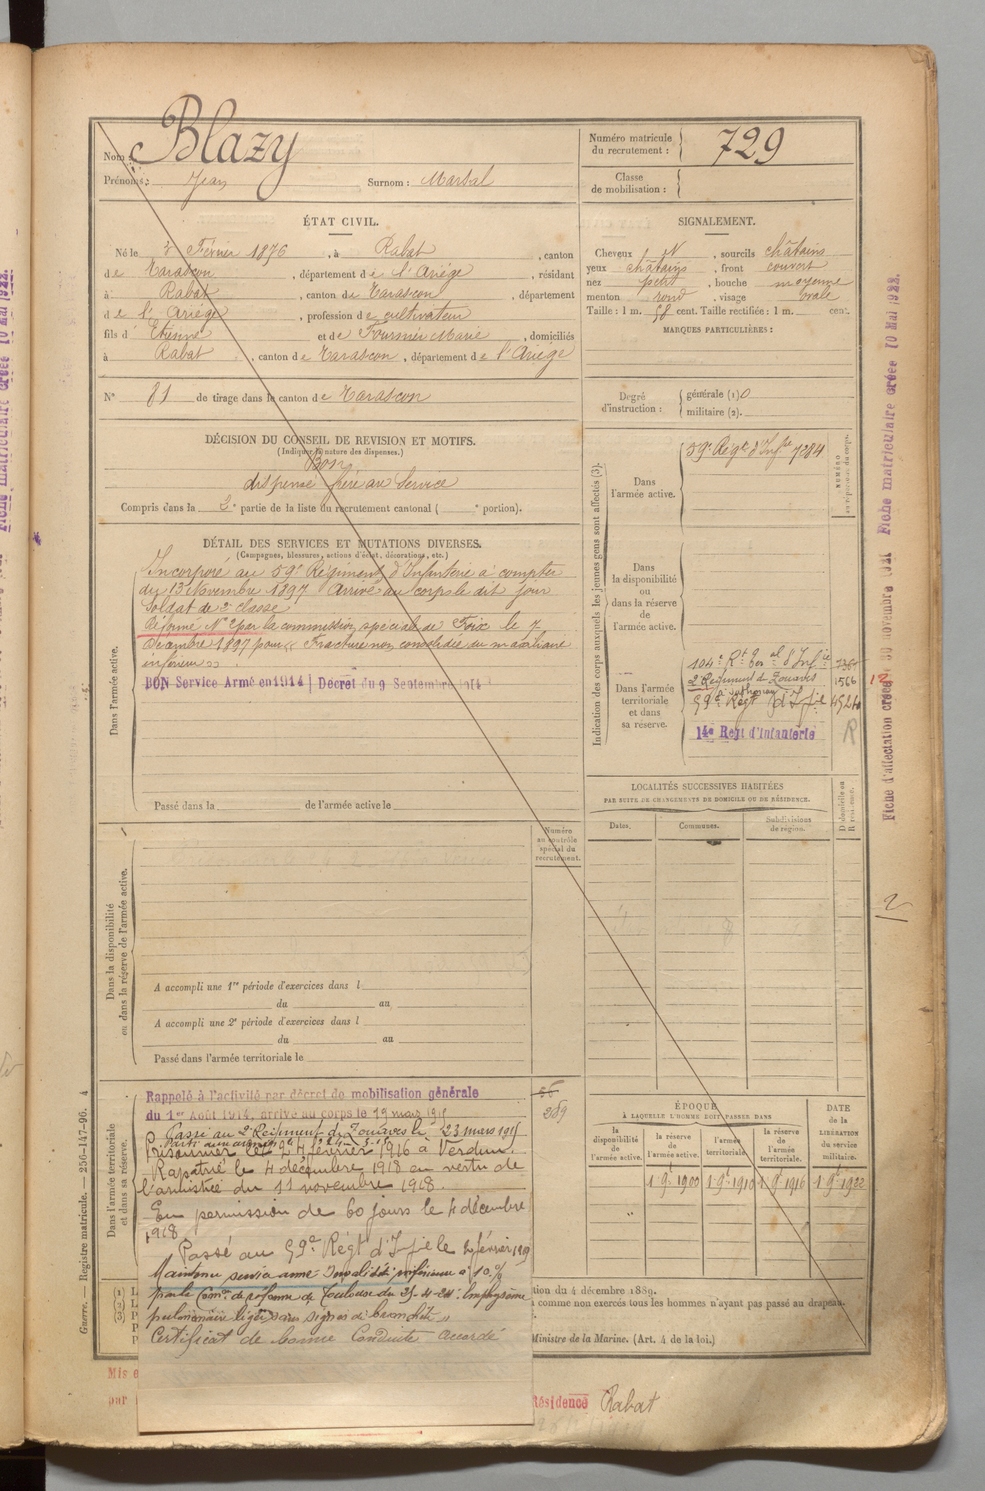 Nom : Blazy
Prénoms : Jean Surnom : Martal
Numéro matricule
du recrutement : 729
Classe
de mobilisation :
ÉTAT CIVIL.
Né le Février 1876, à Rabat, canton
de Tarascon, département de l'Ariège, résidant
à Rabat, canton de Tarascon, département
de l'Ariège, profession de cultivateur
fils d'Etienne et de Fournié Marie, domiciliés
à Rabat, canton de Tarascon, département de l'Ariège
N° 81 de tirage dans le canton de Tarascon
SIGNALEMENT.
Cheveux N, sourcils châtains
yeux châtains, front couvert
nez petit, bouche moyenne
menton rond, visage ovale
Taille : 1 m. 58 cent. Taille rectifiée : 1 m. cent.
MARQUES PARTICULIÈRES :
Degré
d'instruction :
générale (1) 0
militaire (2).
DÉCISION DU CONSEIL DE REVISION ET MOTIFS.
(Indiquer la nature des dispenses.)
Bon
dispensé frère au Service
Compris dans la 2e partie de la liste du recrutement cantonal ( e portion).
DÉTAIL DES SERVICES ET MUTATIONS DIVERSES.
(Campagnes, blessures, actions d'éclat, décorations, etc.)
Dans l'armée active.
Incorporé au 59e Régiment d'Infanterie à compter
du 13 Novembre 1897 Arrivé au corps le dit jour
Soldat de 2e classe
Réformé N° 2 par la commission spéciale de Foix le 7
Décembre 1897 pour « Fracture non consolidée du maxillaire
inférieur ».
BON Service Armé en 1914 | Décret du 9 Septembre 1914
Passé dans la de l'armée active le
Indication des corps auxquels les jeunes gens sont affectés (3).
NUMÉRO
au répertoire du corps.
Dans
l'armée active.
59e Régt d'Infie 7284
Dans
la disponibilité
ou
dans la réserve
de
l'armée active.
Dans l'armée
territoriale
et dans
sa réserve.
104e Rt ter al d'Infie
2e Régiment de Zouaves 1566
59e Régt d'Infie
14e Regt d'Infanterie
R
12
LOCALITÉS SUCCESSIVES HABITÉES
PAR SUITE DE CHANGEMENTS DE DOMICILE OU DE RÉSIDENCE.
Dates. Communes. Subdivisions
de région.
D domicile ou
R résidence.
Numéro
au contrôle
spécial du
recrutement.
Dans la disponibilité
ou dans la réserve de l'armée active.
A accompli une 1re période d'exercices dans l
du au
A accompli une 2e période d'exercices dans l
du au
Passé dans l'armée territoriale le
Dans l'armée territoriale
et dans sa réserve.
56
289
Rappelé à l'activité par décret de mobilisation générale
du 1er Août 1914, arrivé au corps le 19 mars 1915
Passé au 2e Régiment de Zouaves le 23 mars 1915
Prisonnier le 24 février 1916 à Verdun.
Rapatrié le 4 décembre 1918 en vertu de
l'armistice du 11 novembre 1918.
En permission de 60 jours le 4 décembre
1918
Passé au 59e Régt d'Infie le 2 février 1919
Maintenu service armé Invalidité inférieure à 10 %
par la Comon de réforme de Toulouse du 25-4-24: Emphysème
pulmonaire léger sans signes de bronchite "
Certificat de bonne Conduite accordé
ÉPOQUE
À LAQUELLE L'HOMME DOIT PASSER DANS
la
disponibilité
de
l'armée active.
la réserve
de
l'armée active.
l'armée
territoriale.
la réserve
de
l'armée
territoriale.
DATE
de la
LIBÉRATION
du service
militaire.
1 9 1900 1 9 1910 1 9 1916 1 9 1922
tion du 4 décembre 1889.
comme non exercés tous les hommes n'ayant pas passé au drapeau.
Ministre de la Marine. (Art. 4 de la loi.)
Mis e
par
Résidence Rabat
Guerre. — Registre matricule. — 256-147-96. 4
Fiche matriculaire créée 10 Mai 1922.
2